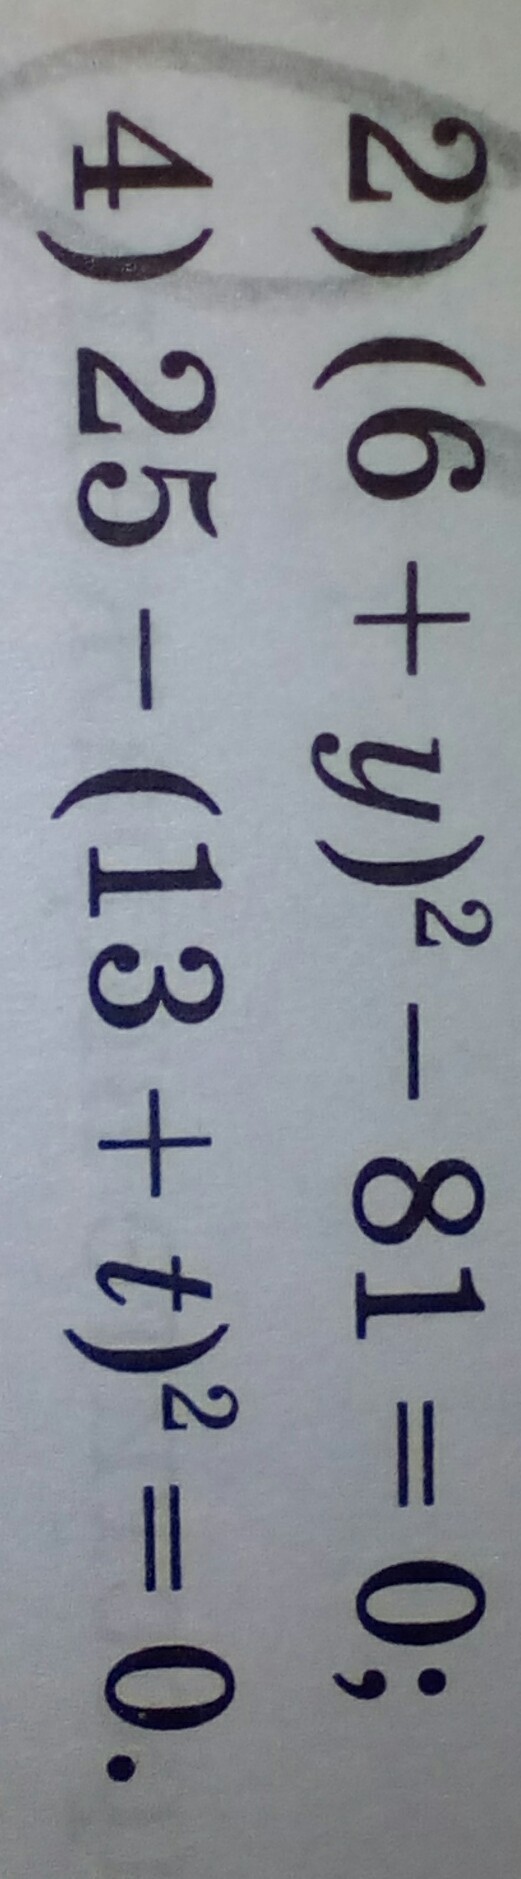 2) (6 + y)² − 81 = 0;
4) 25 − (13 + t)² = 0.